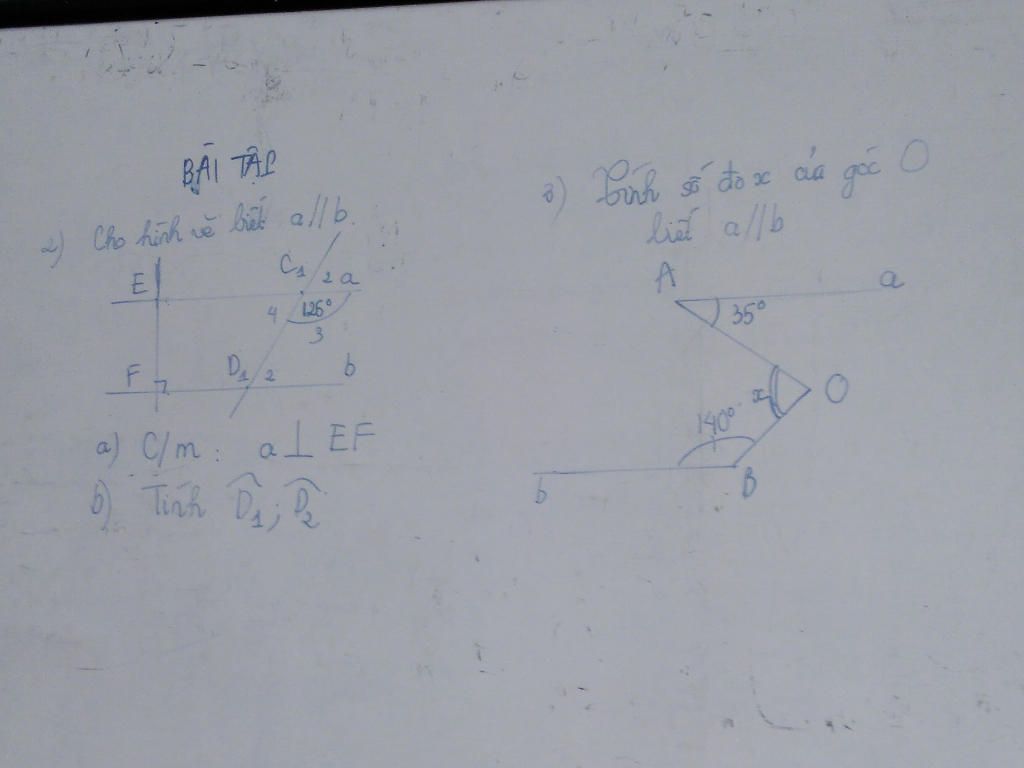 BÀI TẬP
2) Cho hình vẽ biết a//b.
E
C₁
2
a
4
126°
3
F
D₁
2
b
a) C/m : a ⊥ EF
b) Tính D̂₁ ; D̂₂
3) Tính số đo x của góc O
biết a//b
A
a
35°
x
O
140°
b
B